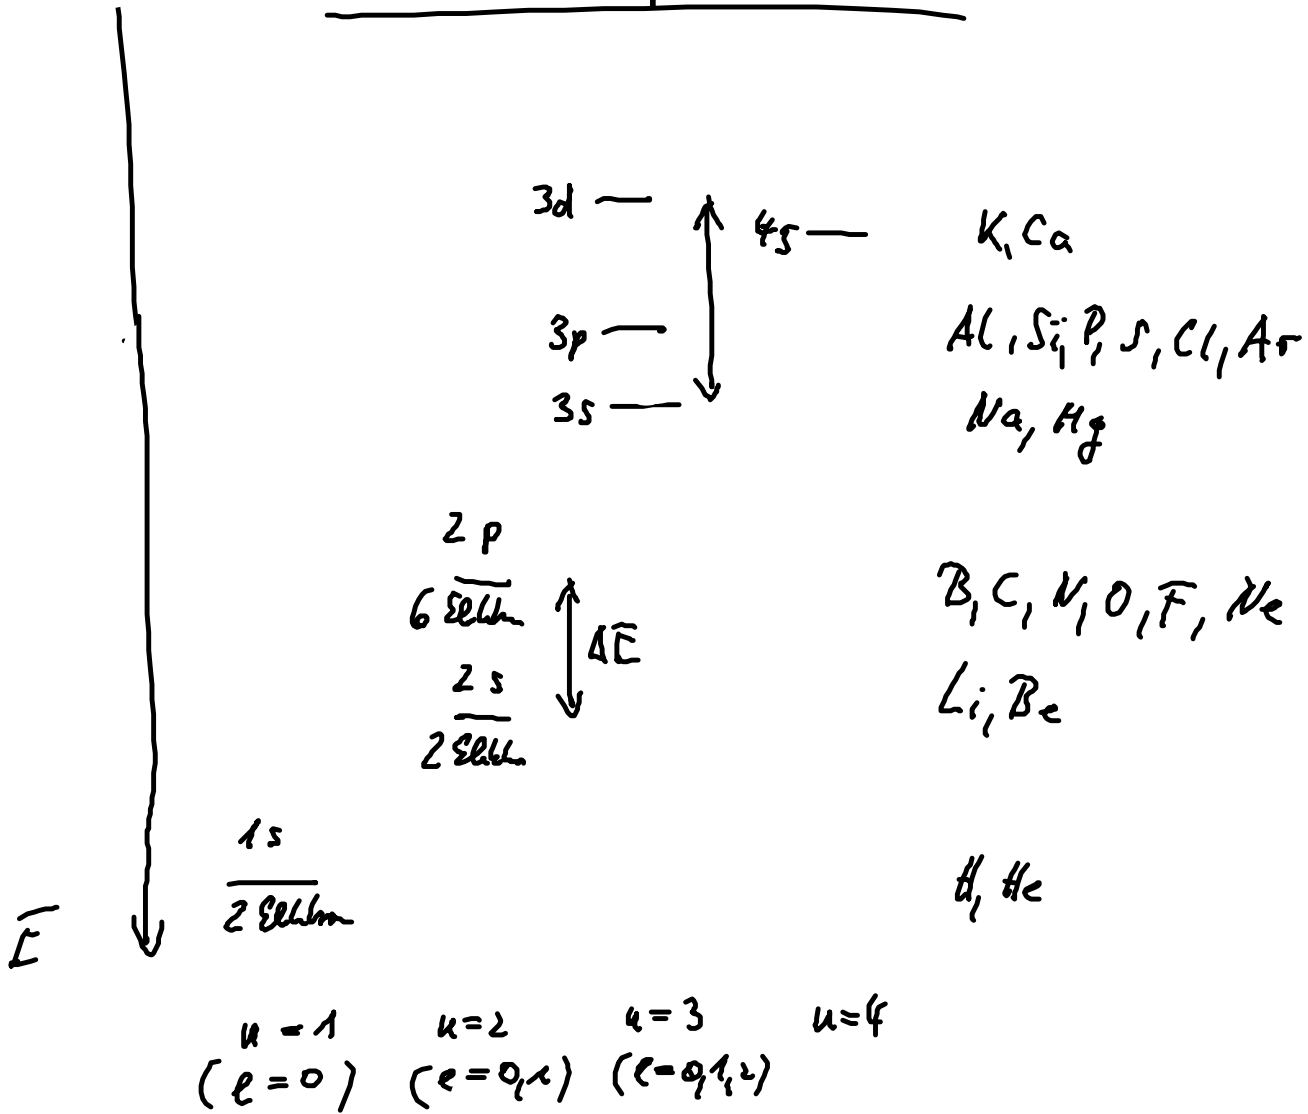 3d
4s
K, Ca
3p
Al, Si, P, S, Cl, Ar
3s
Na, Hg
2p
6 Elektron
B, C, N, O, F, Ne
ΔE
2s
2 Elektron
Li, Be
1s
2 Elektron
H, He
E
n = 1 n = 2 n = 3 n = 4
(l = 0) (l = 0,1) (l = 0,1,2)